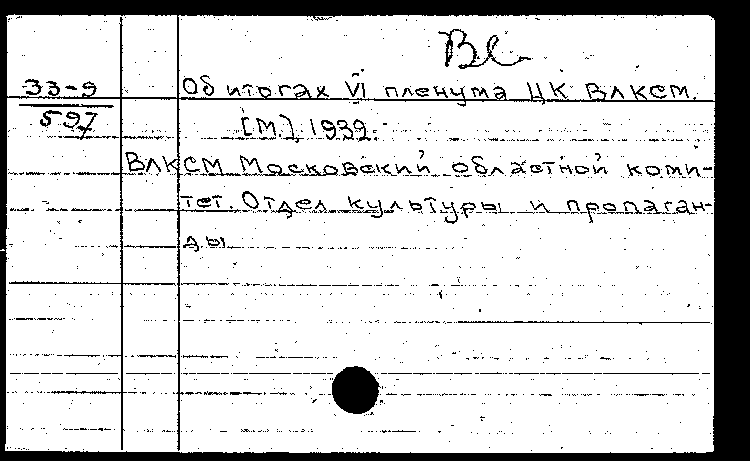 Вс
33-9
597
Об итогах VI пленума ЦК ВЛКСМ.
[М.], 1932.
ВЛКСМ Московский областной коми-
тет. Отдел культуры и пропаган-
ды